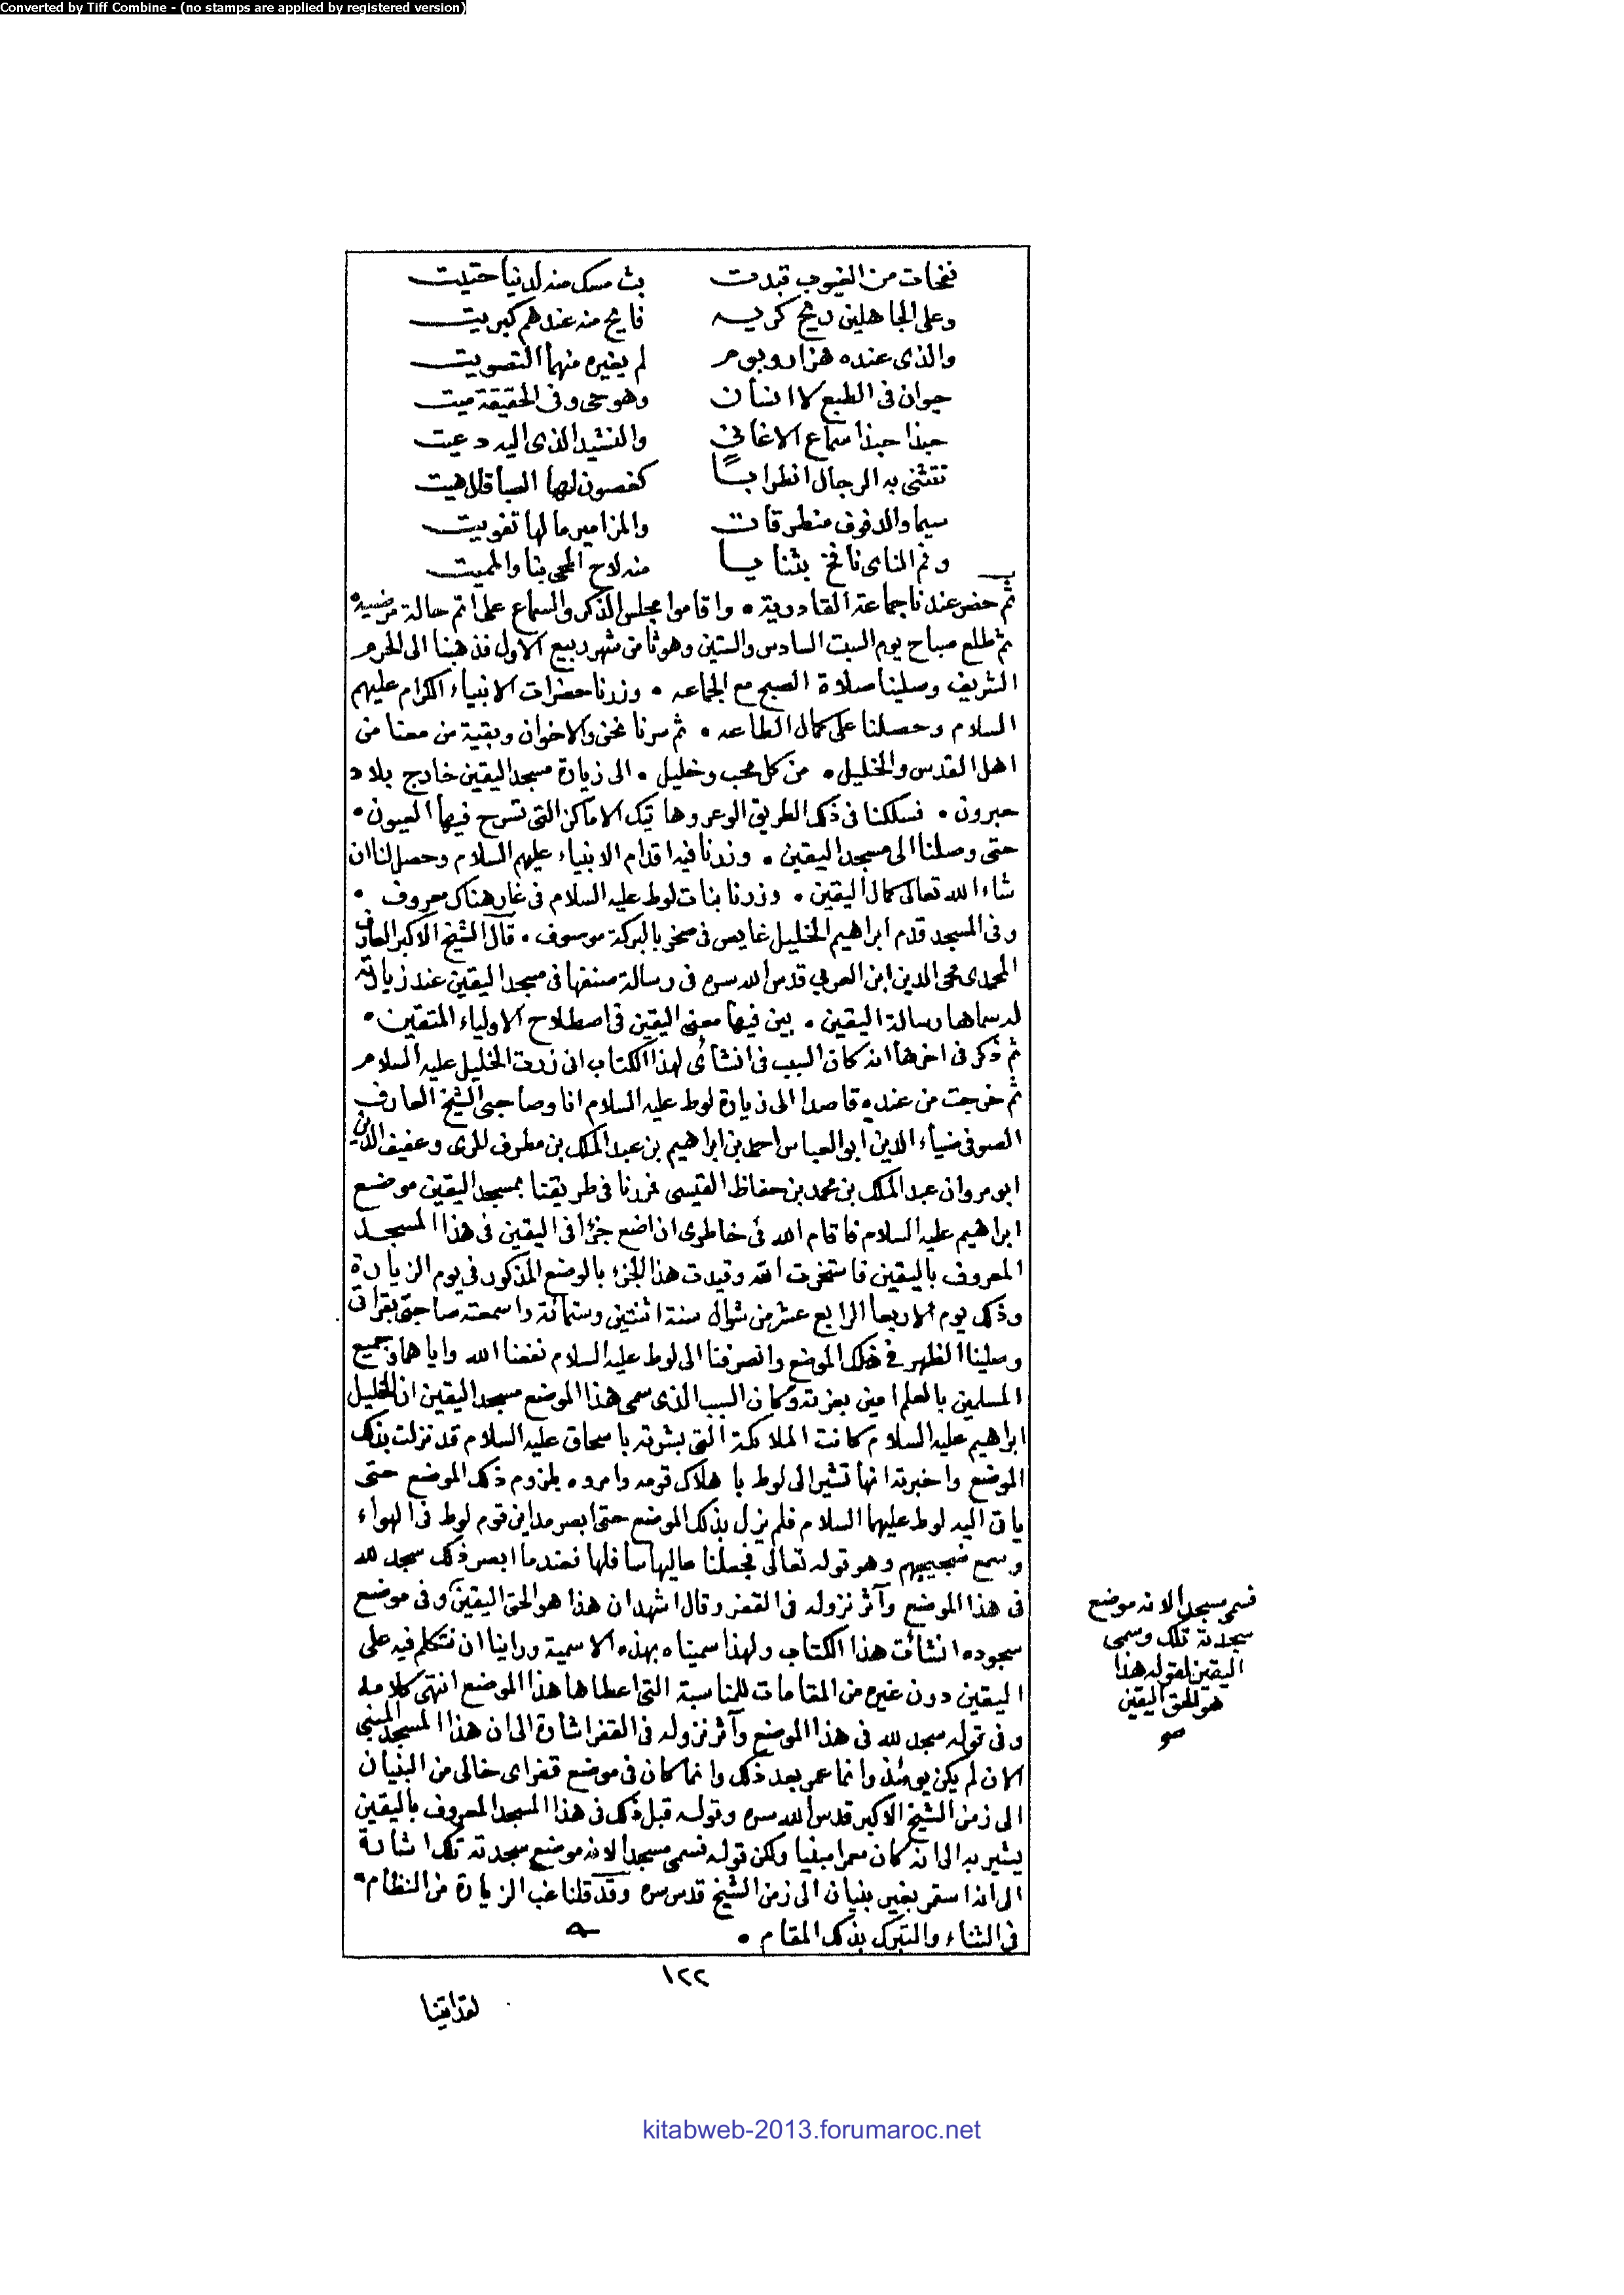 Converted by Tiff Combine - (no stamps are applied by registered version)
نفحات من الغيوب تبدت بث مسك منه لدنيا حتيت
وعلى الجاهلين ريح كريه فايح منه عندهم كبريت
والذى عنده هزار وبوم لم يغيره منهما التصويت
حيوان فى الطبع لا انسان وهو حى وفى الحقيقة ميت
حبذا حبذا سماع الاغانى والنشيد الذى اليه دعيت
تنثنى به الرجال اطرابا كغصون لها الصبا قال هيت
سيما والدفوف منطرقات والمزامير ما لها تفويت
وفم الناى نافخ بثنايا منه لاح المحى بنا والمميت
ثم حضر عندنا جماعة القادرية • واقاموا مجلس الذكر والسماع على اتم حالة مرضيه
ثم طلع صباح يوم السبت السادس والستين وهو ثامن شهر ربيع الاول فذهبنا الى الحرم
الشريف وصلينا صلاة الصبح مع الجماعه • وزرنا حضرات الانبياء الكرام عليهم
السلام وحصلنا على كمال الطاعه • ثم سرنا نحن والاخوان وبقية من معنا من
اهل القدس والخليل • من كل محب وخليل • الى زيارة مسجد اليقين خارج بلاد
حبرون • فسلكنا فى ذلك الطريق الوعر وهاتيك الاماكن التى تسرح فيها العيون •
حتى وصلنا الى مسجد اليقين • وزرنا فيه اقدام الانبياء عليهم السلام وحصل لنا ان
شاء الله تعالى كمال اليقين • وزرنا بنات لوط عليه السلام فى غار هناك معروف •
وفى المسجد قدم ابراهيم الخليل غايص فى صخر بالبركة موصوف • قال الشيخ الاكبر العارف
المحمدى محى الدين ابن العربي قدس الله سره فى رسالة صنفها فى مسجد اليقين عند زيارته
له سماها رسالة اليقين • بين فيها معنى اليقين فى اصطلاح الاولياء المتقين •
ثم ذكر فى اخرها انه كان السبب فى انشائى لهذا الكتاب انى زرت الخليل عليه السلام
ثم خرجت من عنده قاصدا الى زيارة لوط عليه السلام انا وصاحبى الشيخ العارف
الصوفى ضياء الدين ابو العباس احمد بن ابراهيم بن عبد الملك بن مطرف المرى وعفيف الدين
ابو مروان عبد الملك بن محمد بن حفاظ القيسى فمررنا فى طريقنا بمسجد اليقين موضع
ابراهيم عليه السلام فاقام الله فى خاطرى ان اضع جزءا فى اليقين فى هذا المسجد
المعروف باليقين فاستخرت الله وقيدت هذا الجزء بالوضع المذكور فى يوم الزيارة
وذلك يوم الاربعا الرابع عشر من شوال سنة اثنتين وستمائة واسمعته صاحبى بقراتى
وصلينا الظهر فى ذلك الموضع وانصرفنا الى لوط عليه السلام نفعنا الله واياهما وجميع
المسلمين بالعلم امين بعزته وكان السبب الذى سمى هذا الموضع مسجد اليقين ان الخليل
ابراهيم عليه السلام كانت الملائكة التى بشرته باسحاق عليه السلام قد نزلت بذلك
الموضع واخبرته انها تشير الى لوط باهلاك قومه وامروه بلزوم ذلك الموضع حتى
ياتى اليه لوط عليهما السلام فلم يزل بذلك الموضع حتى ابصر مداين قوم لوط فى الهواء
وسمع ضجيجهم وهو قوله تعالى فجعلنا عاليها سافلها فعندما ابصر ذلك سجد لله
فى هذا الموضع وآثر نزوله فى القفر وقال اشهد ان هذا هو الحق اليقين وفى موضع
سجوده انشائت هذا الكتاب ولهذا سميناه بهذه الاسمية وراينا ان نتكلم فيه على
اليقين دون غيره من المقامات للمناسبة التى اعطاها هذا الموضع انتهى كلامه
وفى قوله سجد لله فى هذا الموضع وآثر نزوله فى القفر اشارة الى ان هذا المسجد المبنى
الان لم يكن يومئذ وانما عمر بعد ذلك وانما كان فى موضع قفر اى خالى من البنيان
الى زمن الشيخ الاكبر قدس الله سره وقوله قبل ذلك فى هذا المسجد المعروف باليقين
يشير به الى انه كان معمرا مبنيا ولكن قوله فسمى مسجدا لانه موضع سجدته تلك اشارة
الى انه استمر بغير بنيان الى زمن الشيخ قدس سره وقد قلنا غب الزيارة من النظام •
فى الثناء والتبرك بذلك المقام •
فسمى مسجدا لانه موضع
سجدته تلك وسمى
اليقين لقوله هذا
هو الحق اليقين
صو
١٢٢
لقد اتينا
kitabweb-2013.forumaroc.net